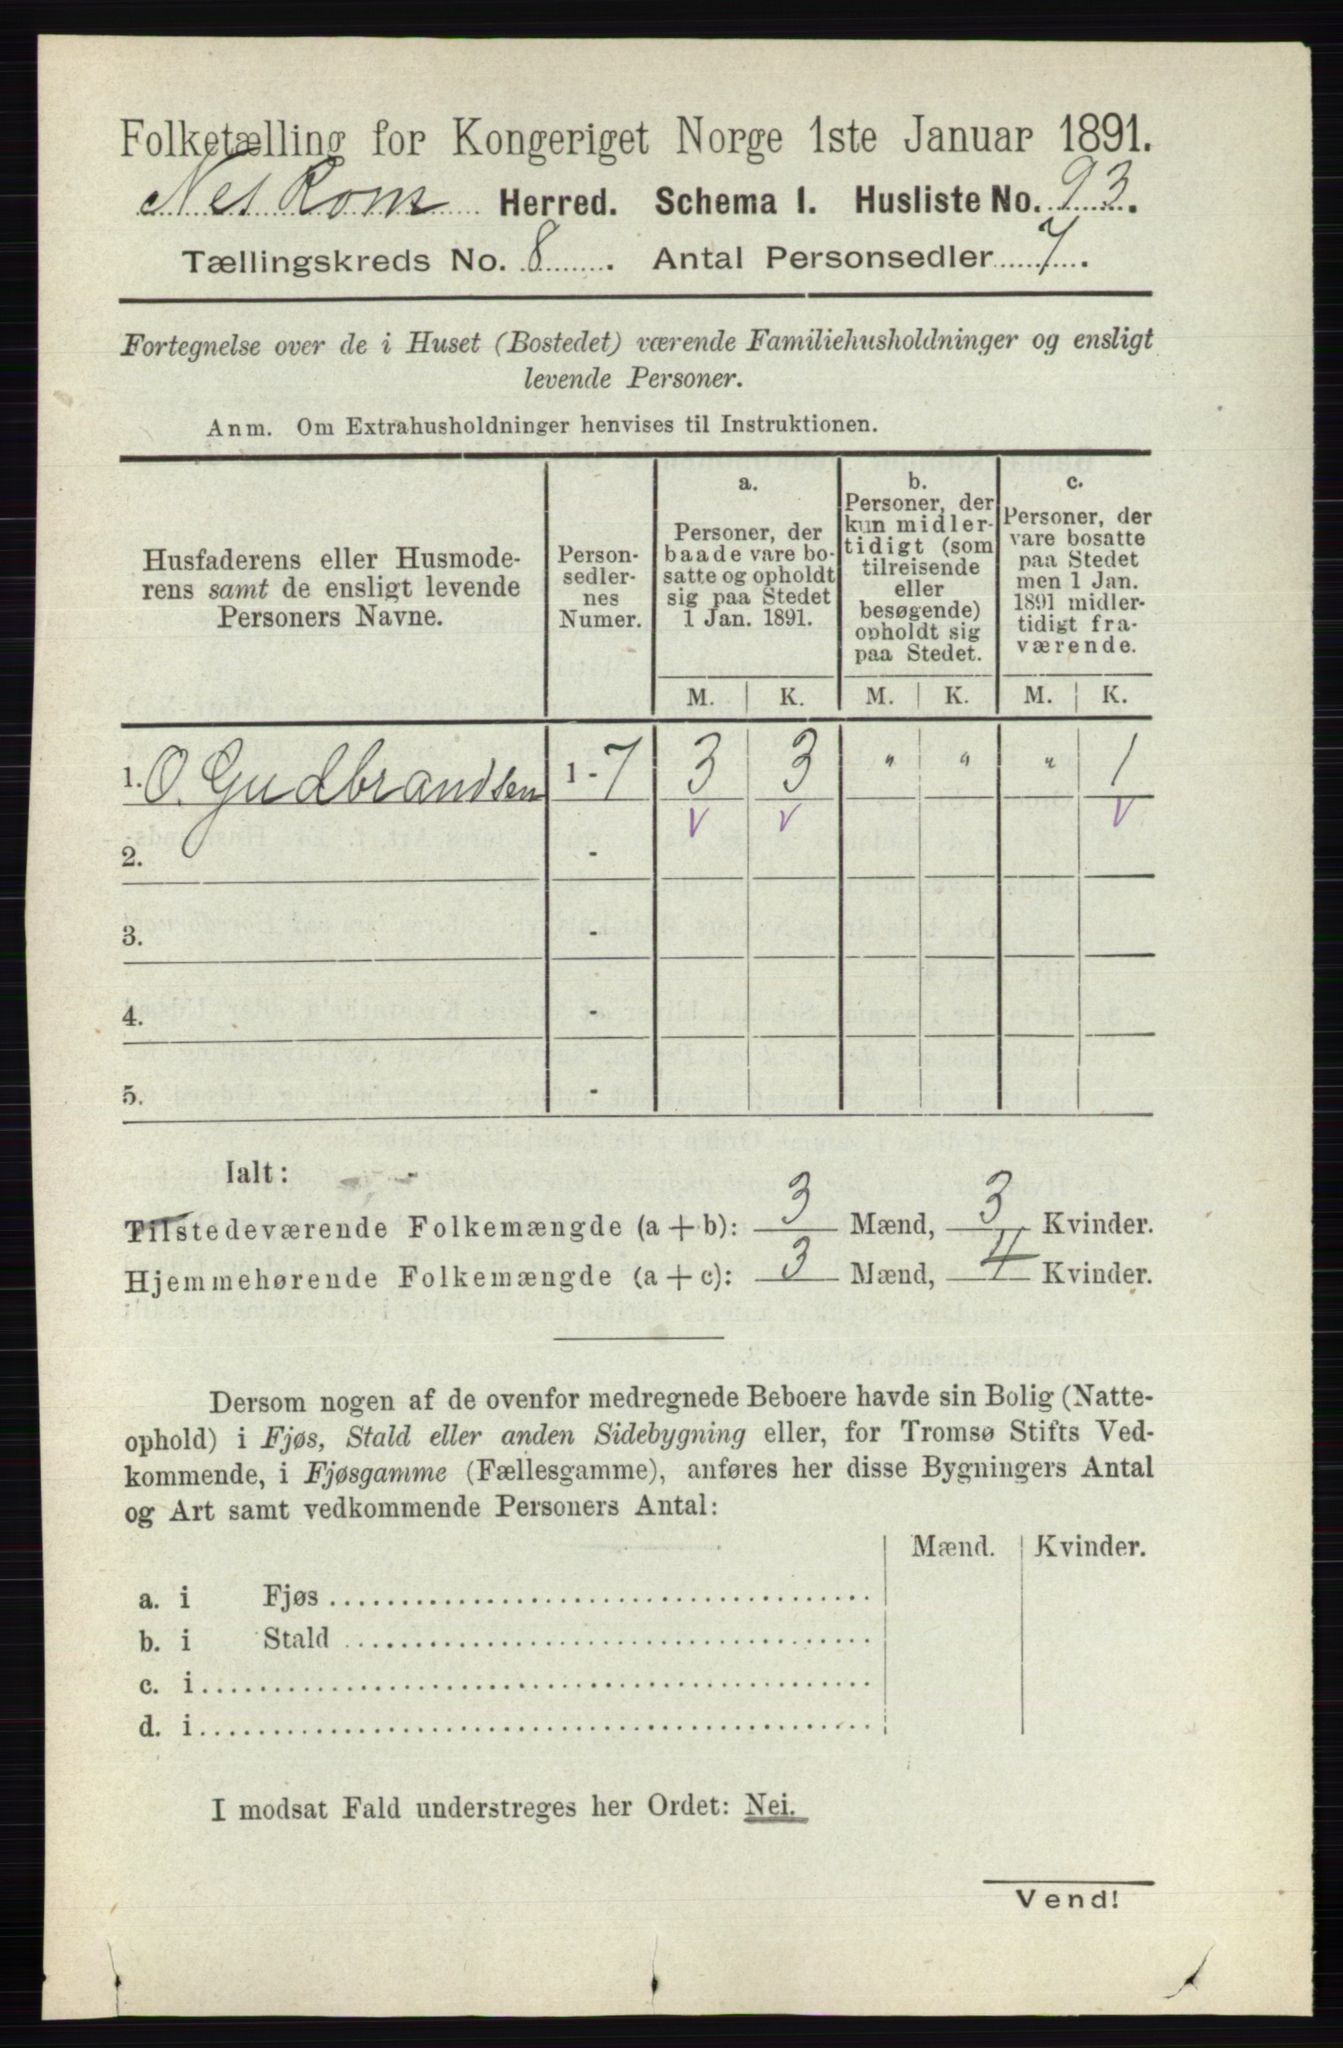 Folketælling for Kongeriget Norge 1ste Januar 1891.
Nes Rom Herred. Schema I. Husliste No. 93.
Tællingskreds No. 8. Antal Personsedler 7.
Fortegnelse over de i Huset (Bostedet) værende Familiehusholdninger og ensligt
levende Personer.
Anm. Om Extrahusholdninger henvises til Instruktionen.
Husfaderens eller Husmode-
rens samt de ensligt levende
Personers Navne.
Person-
sedler-
nes
Numer.
a.
Personer, der
baade vare bo-
satte og opholdt
sig paa Stedet
1 Jan. 1891.
b.
Personer, der
kun midler-
tidigt (som
tilreisende
eller
besøgende)
opholdt sig
paa Stedet.
c.
Personer, der
vare bosatte
paa Stedet
men 1 Jan.
1891 midler-
tidigt fra-
værende.
M. K. M. K. M. K.
1. O. Gudbrandsen 1 - 7 3 3 " " " 1
v v v
2. -
3. -
4. -
5. -
Ialt:
Tilstedeværende Folkemængde (a + b): 3 Mænd, 3 Kvinder.
Hjemmehørende Folkemængde (a + c): 3 Mænd, 4 Kvinder.
Dersom nogen af de ovenfor medregnede Beboere havde sin Bolig (Natte-
ophold) i Fjøs, Stald eller anden Sidebygning eller, for Tromsø Stifts Ved-
kommende, i Fjøsgamme (Fællesgamme), anføres her disse Bygningers Antal
og Art samt vedkommende Personers Antal:
Mænd. Kvinder.
a. i Fjøs
b. i Stald
c. i
d. i
I modsat Fald understreges her Ordet: Nei.
Vend!